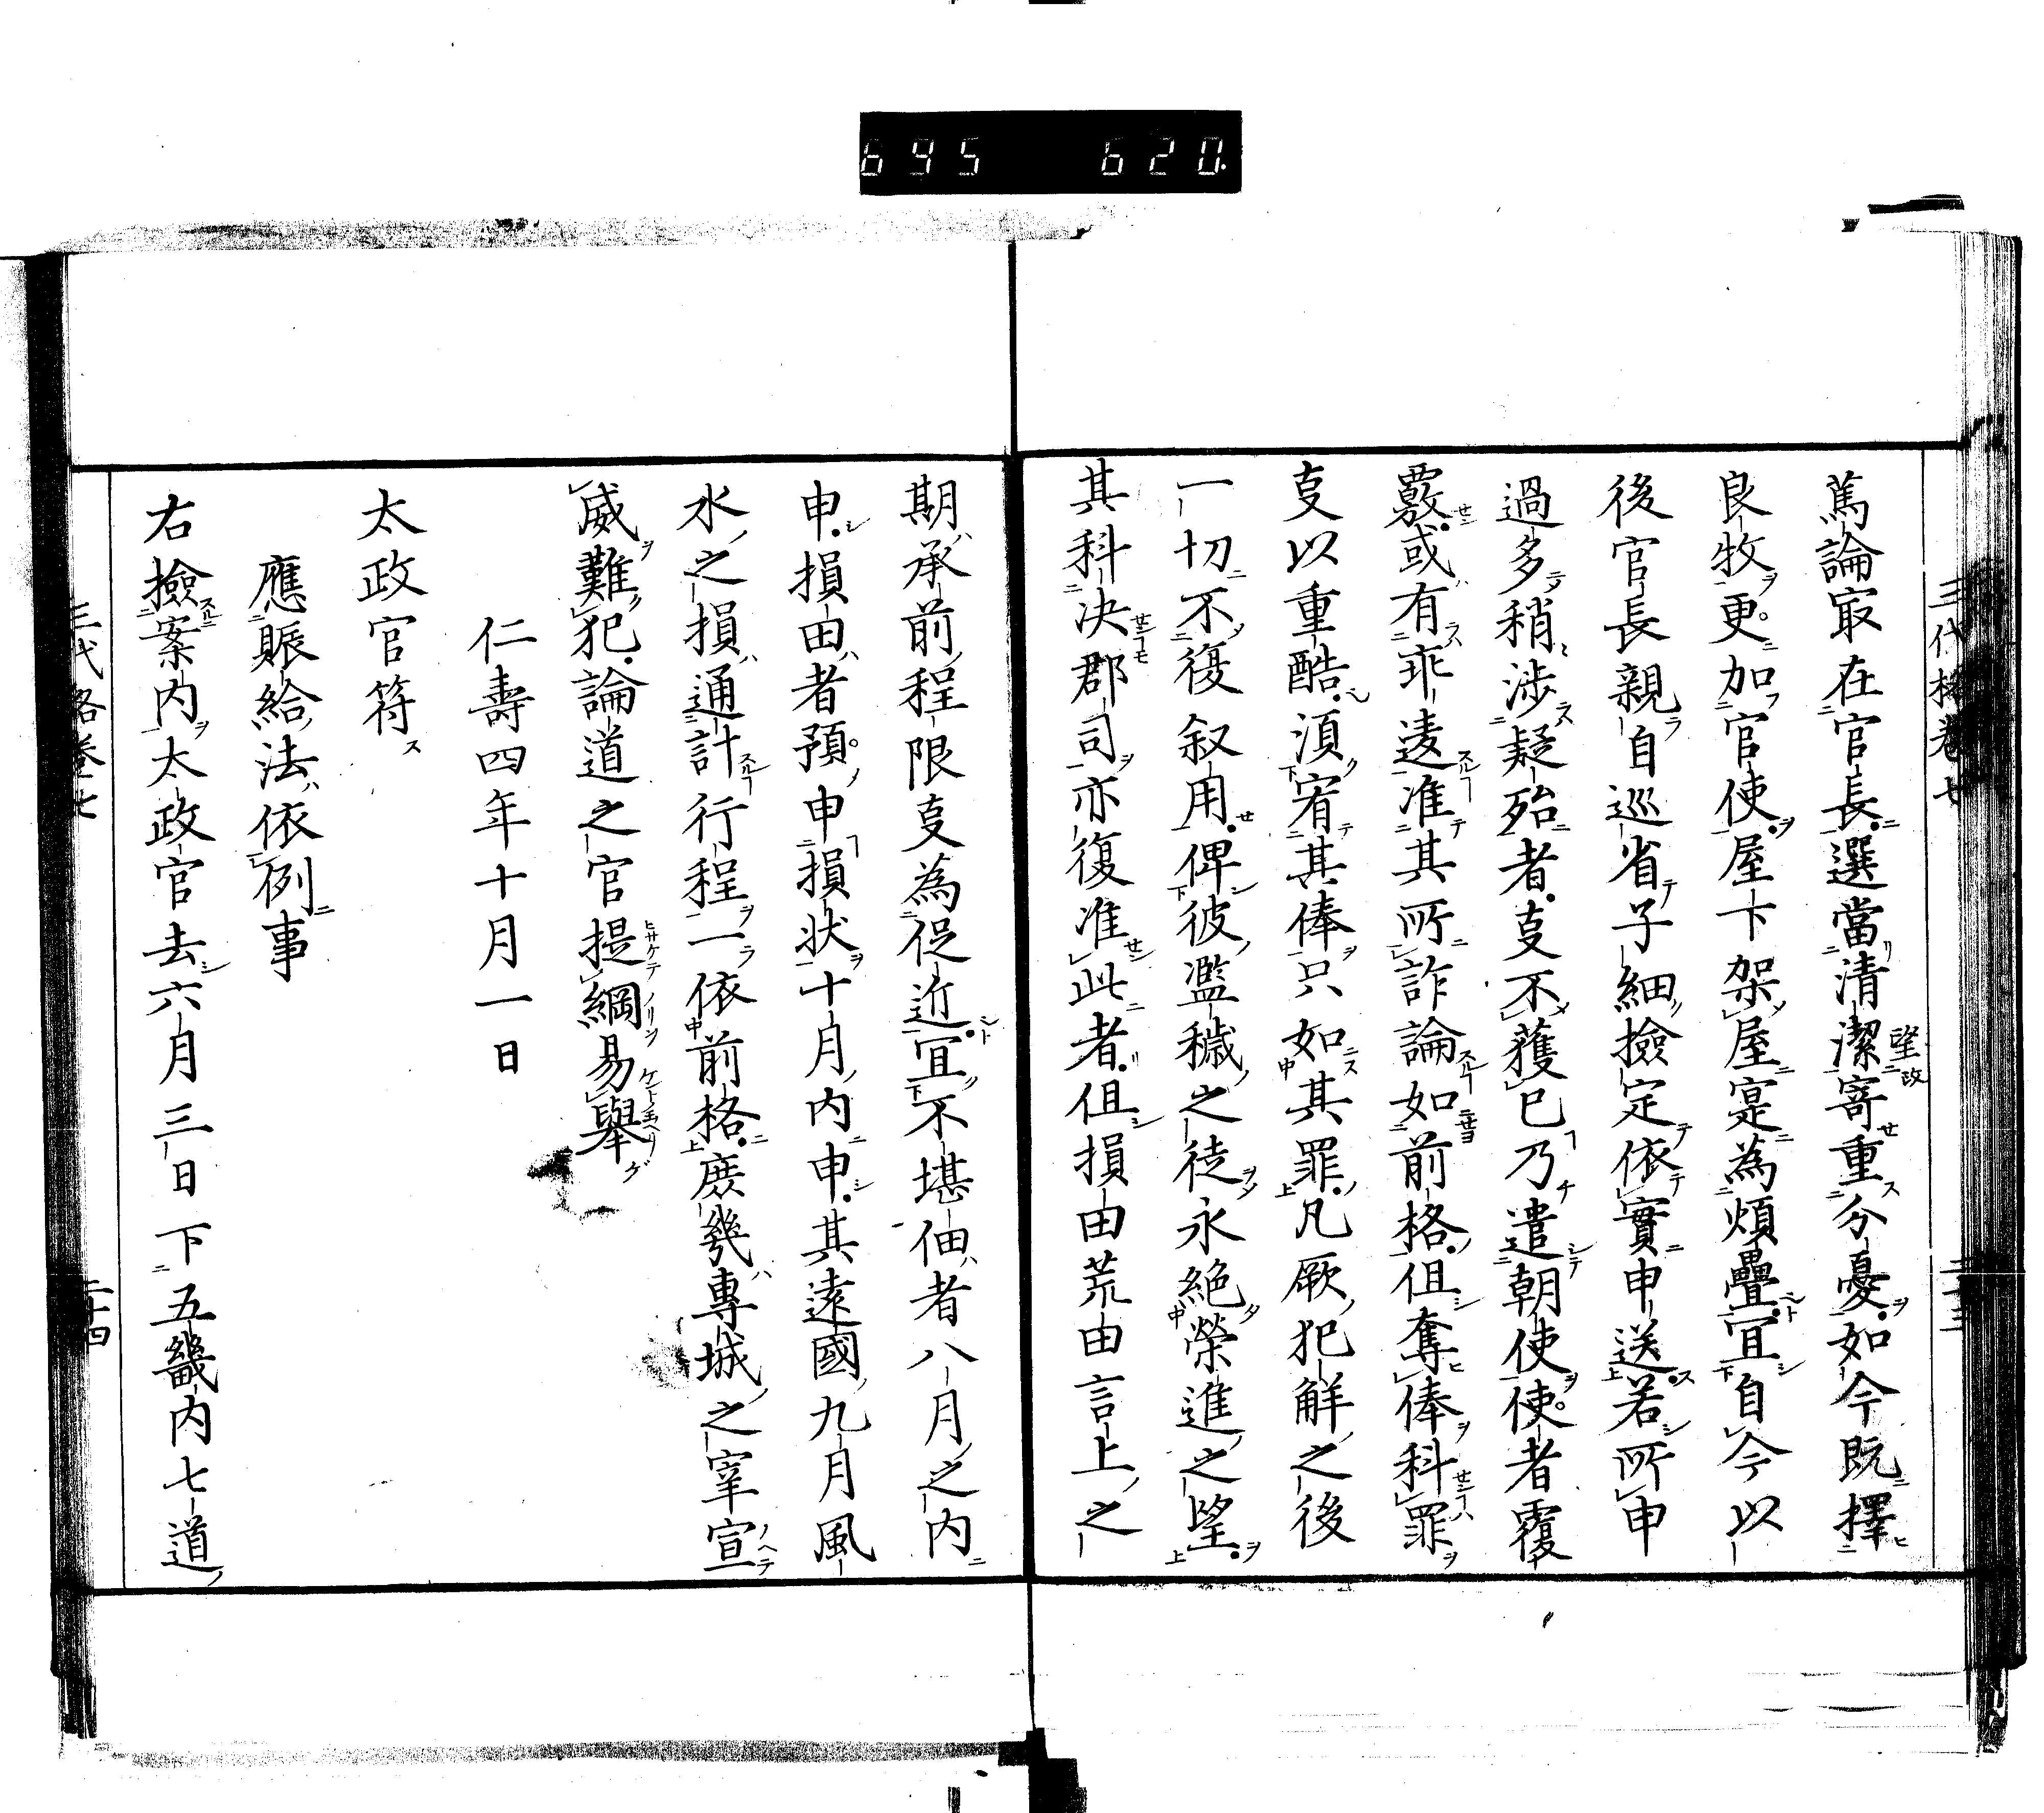 695 620.
三代格卷七 二十三
篤論㝡在官長選當清潔寄重分憂如今既擇
望政
良牧更加官使屋下架屋寔為煩疊宜自今以
後官長親自巡省子細撿定依實申送若所申
過多稍渉疑殆者㕝不獲已乃遣朝使使者覆
覈或有乖違准其所詐論如前格但奪俸科罪
㕝以重酷須宥其俸只如其罪凡厥犯解之後
一切不復叙用俾彼濫穢之徒永絶榮進之望
其科决郡司亦復准此者但損由荒由言上之
期承前程限㕝為促近宜不堪佃者八月之内
申損由者預申損状十月内申其遠國九月風
水之損通計行程一依前格庶幾專城之宰宣
威難犯論道之官提綱易舉
仁壽四年十月一日
太政官符
應賑給法依例事
右撿案内太政官去六月三日下五畿内七道
三代格卷七 二十四